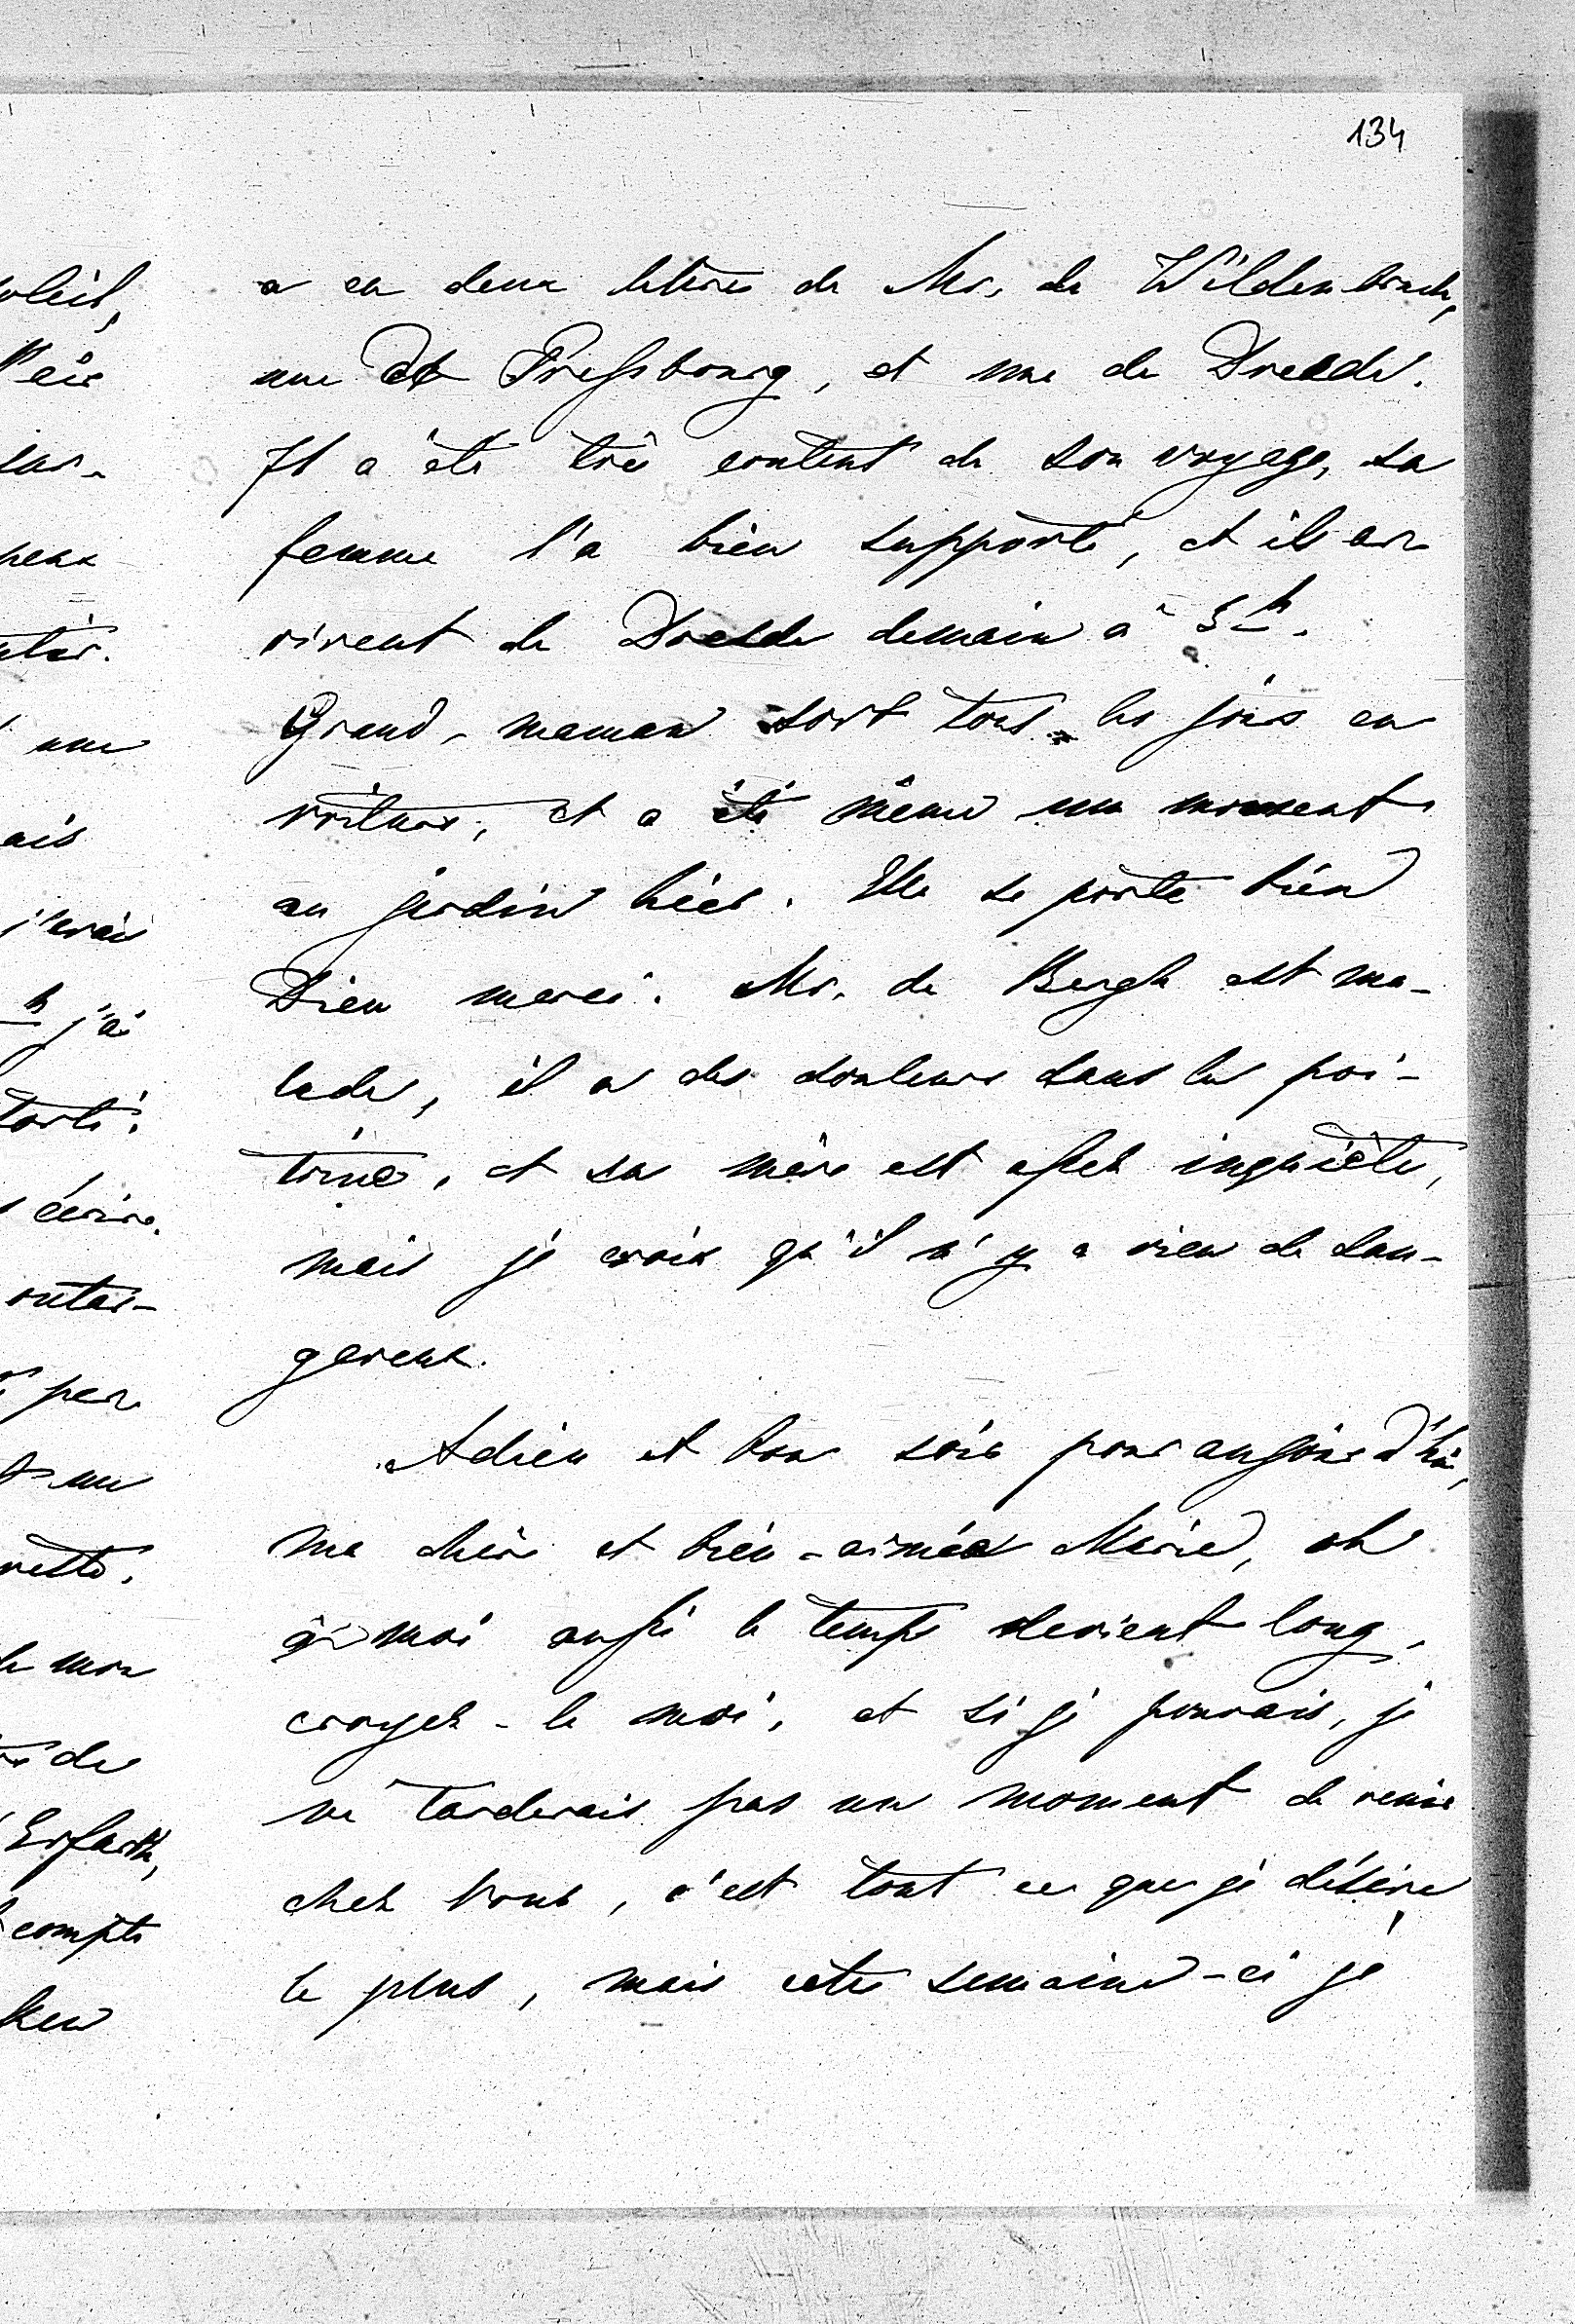 134
a eu deux lettres de Mr. de Wildenbruch,
une de Pressbourg, et une de Dresde.
Il a été très content de son voyage, sa
femme l'a bien supporté, et ils ar
rivent de Dresde demain à 5 h.
Grand-maman sort tous les jours en
voiture, et a été même un moment
au jardin hier. Elle se porte bien
Dieu merci. Mr. de Bergh est ma-
lade, il a des douleurs dans la poi-
trine, et sa mère est assez inquiète,
mais je crois qu'il n'y a rien de dan-
gereux.
Adieu et bon soir pour aujourd'hui,
ma chère et bien-aimée Marie, oh
à moi aussi le temps devient long,
croyez-le moi, et si je pouvais, je
ne tarderais pas un moment de venir
chez Vous, c'est tout ce que je désire
le plus, mais cette semaine-ci je
une
ais
j'irais
h j'ai
écrire.
per
un
mon
de
Erfurth,
compte